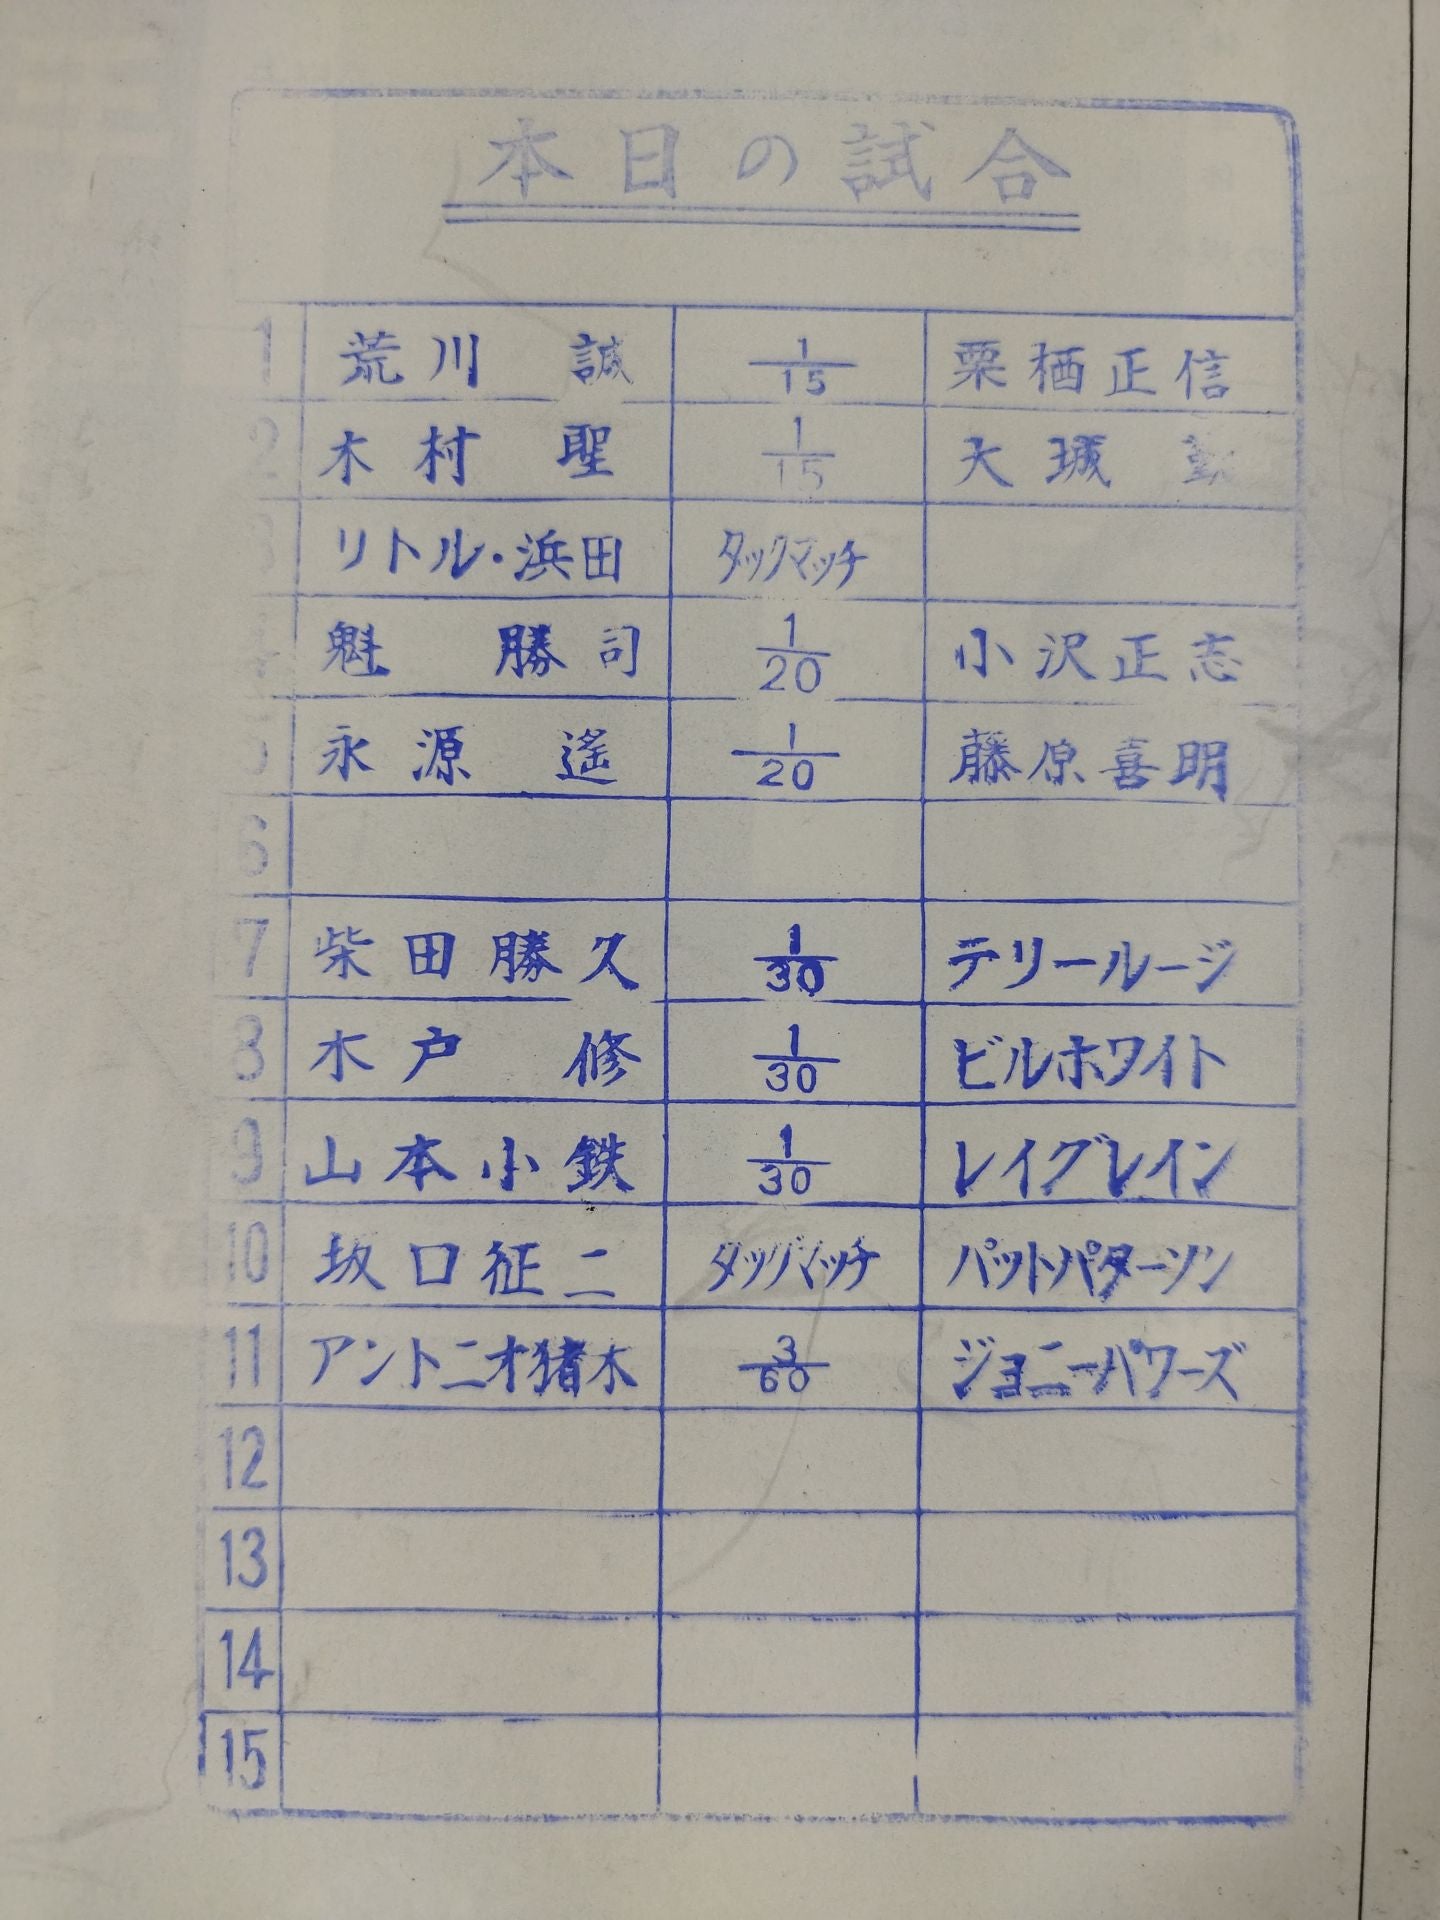 本日の試合
1 荒川 誠 1/15 栗栖正信
2 木村 聖 1/15 大城
3 リトル・浜田 タックマッチ
4 魁 勝司 1/20 小沢正志
5 永源 遙 1/20 藤原喜明
6
7 柴田勝久 1/30 テリールージ
8 木戸 修 1/30 ビルホワイト
9 山本小鉄 1/30 レイグレイン
10 坂口征二 タッグマッチ パットパターソン
11 アントニオ猪木 3/60 ジョニーパワーズ
12
13
14
15